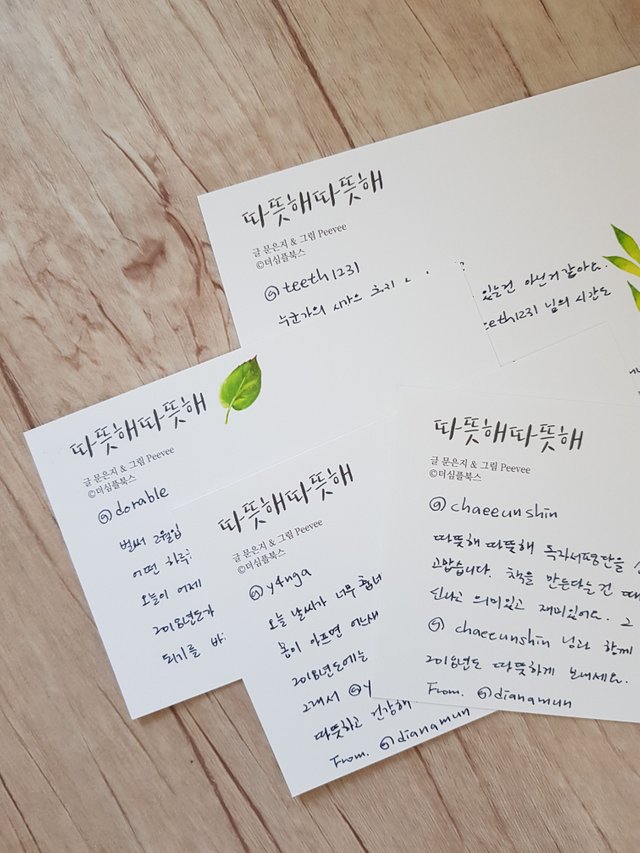 따뜻해따뜻해
글 문은지 & 그림 Peevee
©더심플북스
@teeth1231
누군가의 시간의
있는건 아닌거 같아요.
teeth1231 님의 시간도
따뜻해따뜻해
글 문은지 & 그림 Peevee
©더심플북스
@dorable
벌써 2월입
어떤 하루
오늘이 어제
2018년도가
되기를 바
따뜻해따뜻해
글 문은지 & 그림 Peevee
©더심플북스
@y4nga
오늘 날씨가 너무 춥네
몸이 아프면
2018년도에는
그래서 @y
따뜻하고 건강해
From. @dianamun
따뜻해따뜻해
글 문은지 & 그림 Peevee
©더심플북스
@chaeeunshin
따뜻해 따뜻해 독자서평단을
고맙습니다. 책을 만든다는 건
신나고 의미있고 재미있어요. 그
@chaeeunshin 님과 함께
2018년도 따뜻하게 보내세요.
From. @dianamun